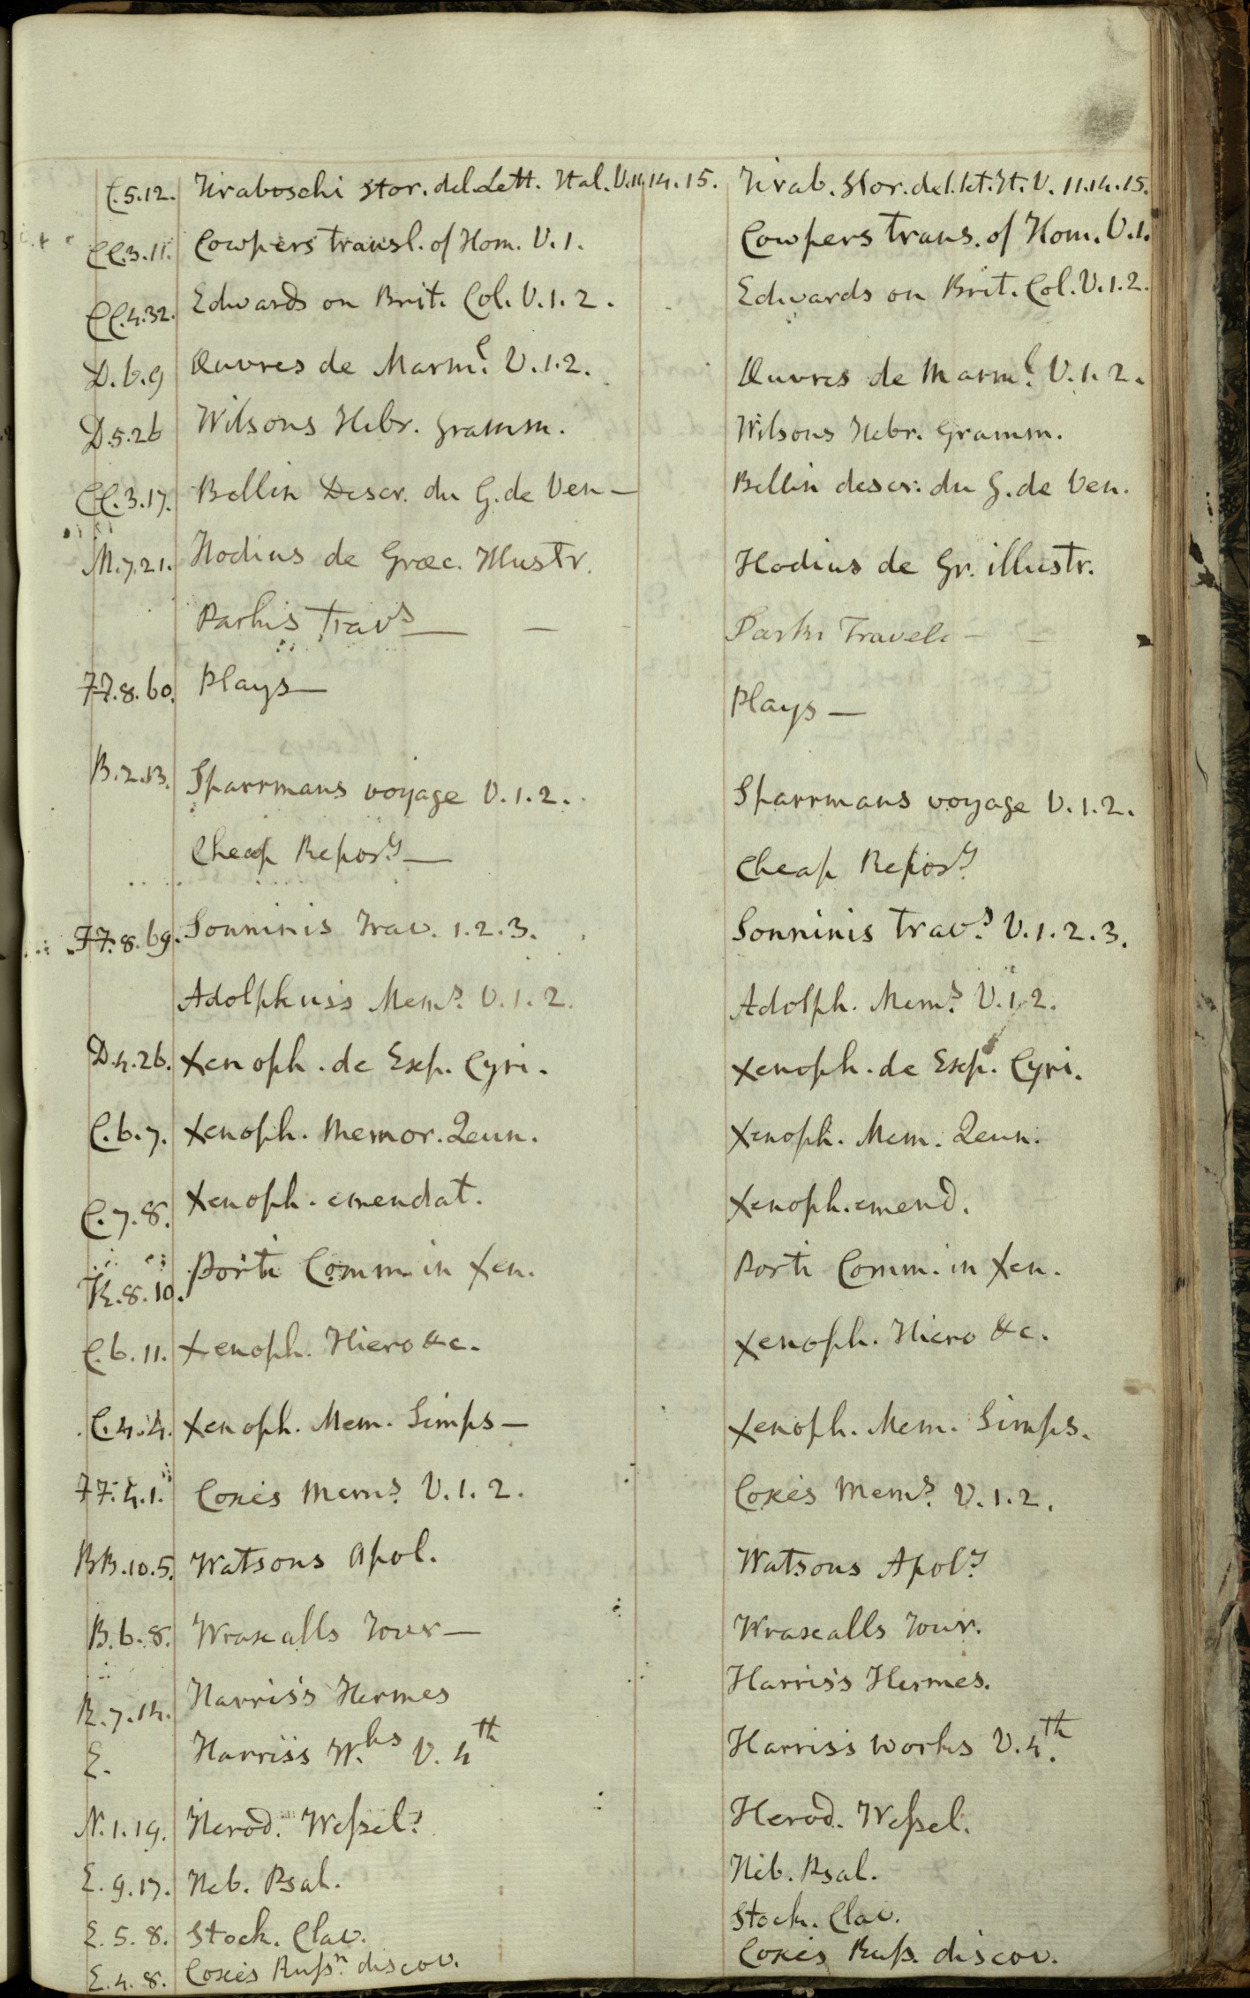 C.5.12. Tiraboschi Stor. del. Lett. Ital. V.11.14.15. Tirab. Stor. del. Let. It. V. 11.14.15.
CC.3.11. Cowpers transl. of Hom. V.1. Cowpers trans. of Hom. V.1.
CC.4.32. Edwards on Brit. Col. V.1.2. Edwards on Brit. Col. V.1.2.
D.6.9 Œuvres de Marm.l V.1.2. Œuvres de Marm.l V.1.2.
D.5.26 Wilsons Hebr. Gramm. Wilsons Hebr. Gramm.
CC.3.17. Bellin Descr. du G. de Ven— Bellin descr. du G. de Ven.
M.7.21. Hodius de Græc. Illustr. Hodius de Gr. illustr.
Parks Travs — — Parks Travels — —
FF.8.60. Plays— Plays—
B.2.13. Sparrmans voyage V.1.2. Sparrmans voyage V.1.2.
Cheap Repos.y — Cheap Repos.y
FF.8.69. Sonninis Trav. 1.2.3. Sonninis Trav.s V.1.2.3.
Adolphus's Mem.s V.1.2. Adolph. Mem.s V.1.2.
D.4.26. Xenoph. de Exp. Cyri. Xenoph. de Exp. Cyri.
C.6.7. Xenoph. Memor. Zeun. Xenoph. Mem. Zeun.
C.7.8. Xenoph. emendat. Xenoph. emend.
K.8.10. Porti Comm. in Xen. Porti Comm. in Xen.
C.6.11. Xenoph. Hiero &c. Xenoph. Hiero &c.
C.4.4. Xenoph. Mem. Simps— Xenoph. Mem. Simps.
FF.4.1. Coxe's Mem.s V.1.2. Coxe's Mem.s V.1.2.
BB.10.5. Watsons Apol. Watsons Apol.y
B.6.8. Wraxalls Tour— Wraxalls Tour.
R.7.14. Harris's Hermes Harris's Hermes.
E. Harris's W.ks V. 4th Harris's works V. 4.th
N.1.19. Herod. Wessel.s Herod. Wessel.
E.9.17. Heb. Psal. Heb. Psal.
E.5.8. Stock. Clav. Stock. Clav.
E.4.8. Coxe's Russ.n discov. Coxe's Russ. discov.